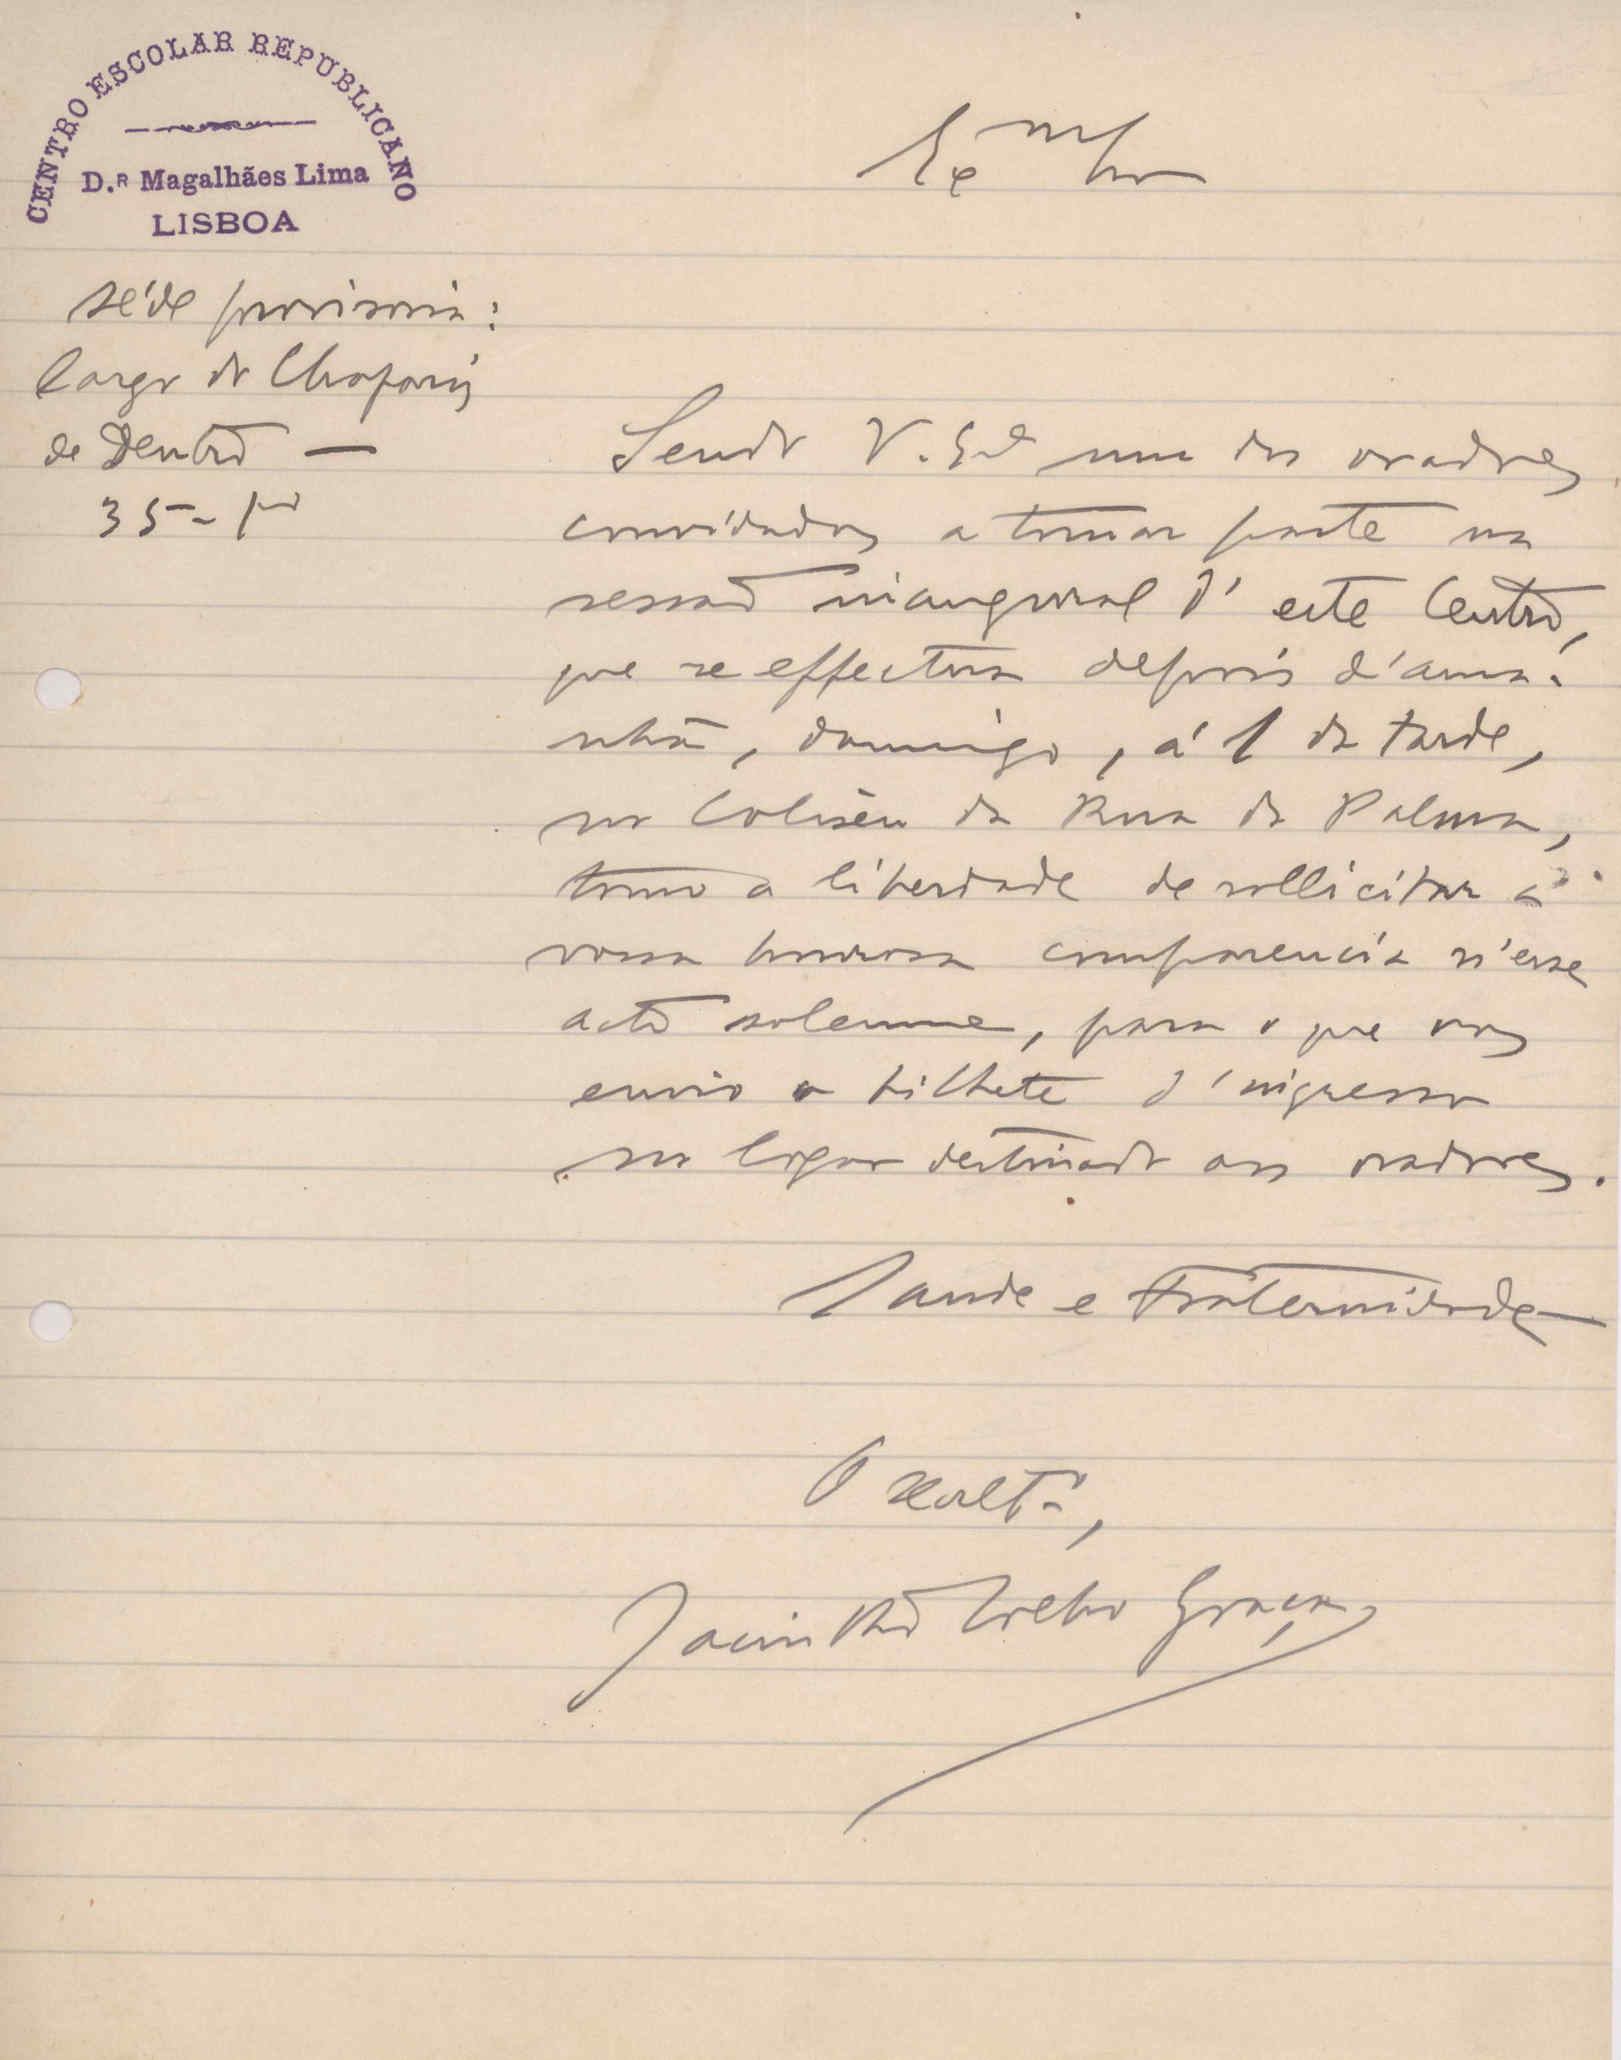 CENTRO ESCOLAR REPUBLICANO
D.R Magalhães Lima
LISBOA
séde provisoria:
Largo do Chafariz
de Dentro —
35 - 1º
Exmo Snr
Sendo V. Exª um dos oradores
convidados a tomar parte na
sessão inaugural d'este Centro,
que se effectua depois d'ama-
nhã, domingo, á 1 da tarde,
no Coliseu da Rua da Palma,
tomo a liberdade de sollicitar a
vossa honrosa comparencia n'esse
acto solemne, para o que vos
envio o bilhete d'ingresso
no logar destinado aos oradores.
Saude e Fraternidade
O Secretº,
Jacintho Coelho Graça